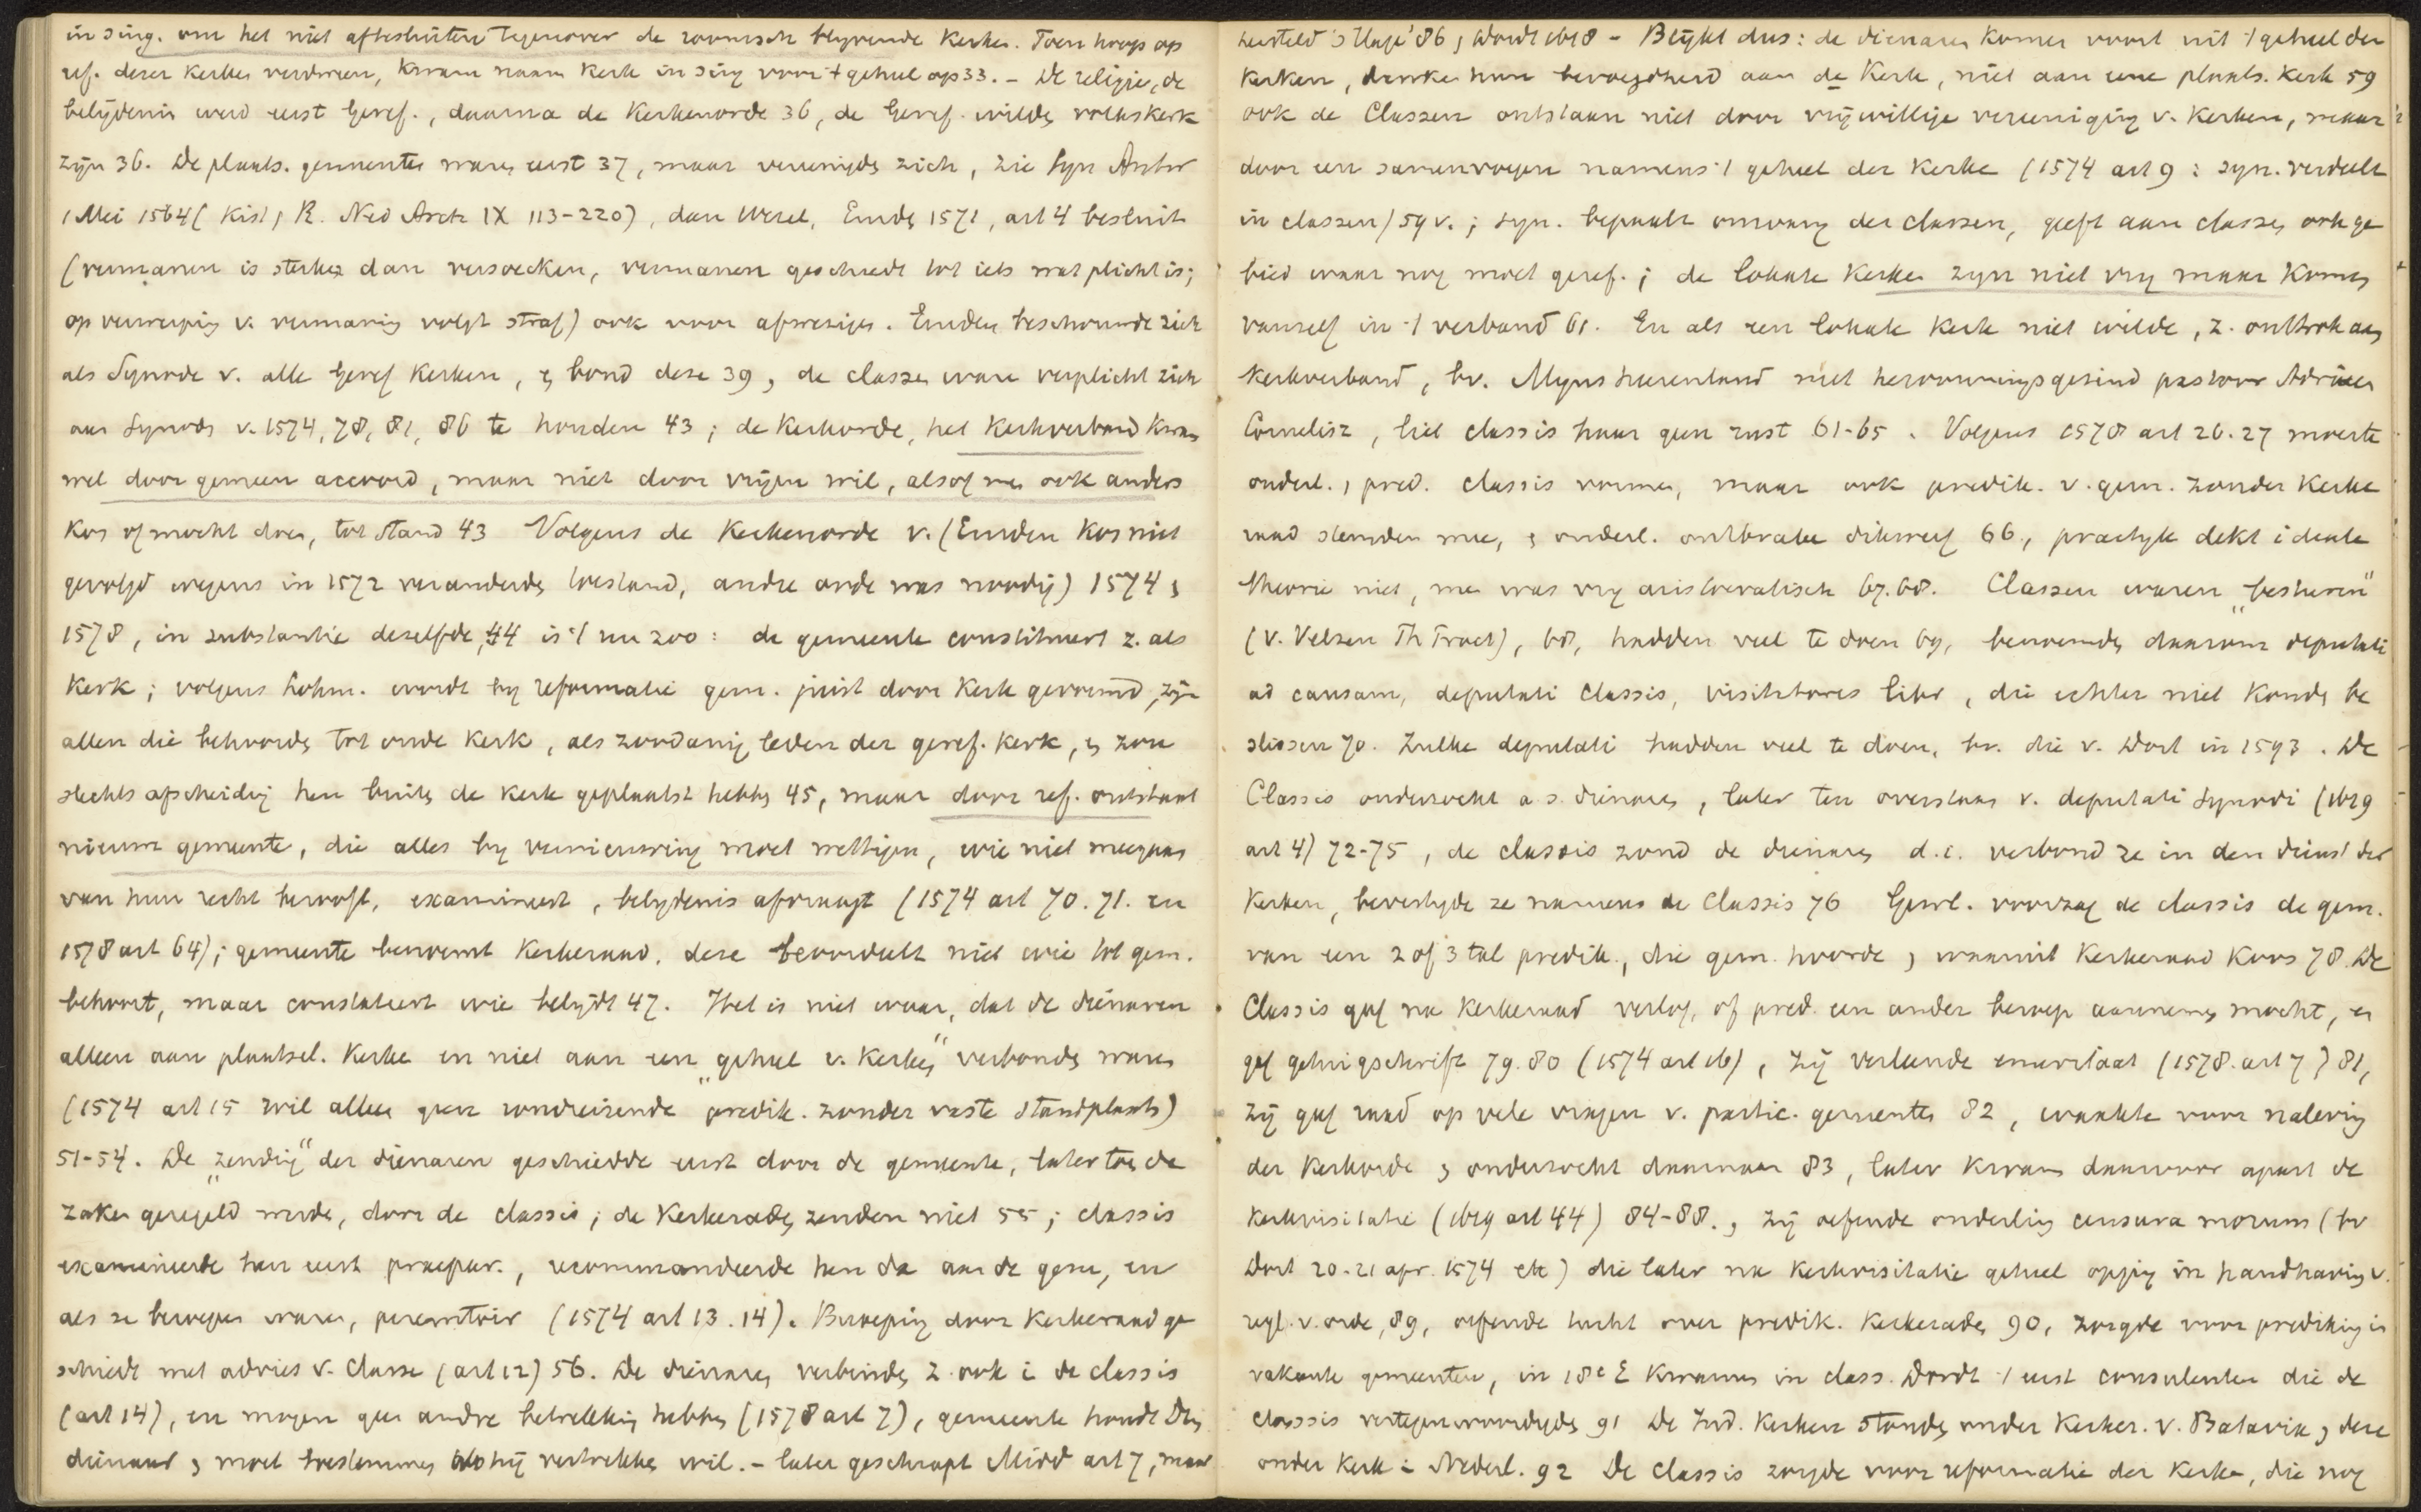 in sing. om het niet afte sluiten tegenover de roomsch blyvende Kerken. Toen hoop op
ref. dezer Kerken verdween, kwam naam Kerk in sing voor 't geheel op 33. – De religie, de
belijdenis werd eerst Geref., daarna de Kerkenorde 36, de Geref. wilden volkskerk
zijn 36. De plaats. gemeenten waren eerst 37, maar vereenigden zich, zie Syn Antw
1 Mei 1564 (Kist, R. Ned Arch IX 113-220), dan Wesel, Emden 1571, art 4 besluit
(vermanen is sterker dan versoecken, vermanen geschiedt tot iets wat plicht is;
op verwerping v. vermaning volgt straf) ook voor afwezigen. Emden beschouwde zich
als Synode v. alle Geref Kerken, en bond deze 39, de classen waren verplicht zich
aan Synoden v. 1574, 78, 81, 86 te houden 43; de Kerkorde, het Kerkverband kwam
wel door gemeen accoord, maar niet door vrijen wil, alsof men ook anders
kon of mocht doen, tot stand 43 Volgens de Kerkenorde v. (Emden kon niet
gevolgd wegens in 1572 veranderden toestand, andre orde was noodig) 1574 en
1578, in substantie dezelfde, 44 is 't nu zoo: de gemeente constitueert z. als
Kerk; volgens Lohm. wordt by reformatie gem. juist door Kerk gevormd, zijn
allen die behoorden tot oude Kerk, als zoodanig leden der geref. Kerk, en zou
slechts afscheiding hen buiten de Kerk geplaatst hebben 45, maar door ref. ontstaat
nieuwe gemeente, die alles by vernieuwing moet wettigen, wie niet meegaan
van hun recht berooft, examineert, belydenis afvraagt (1574 art 70. 71. en
1578 art 64); gemeente benoemt Kerkeraad, deze beoordeelt niet wie tot gem.
behoort, maar constateert wie belijdt 47. Het is niet waar, dat de dienaren
alleen aan plaatsel. Kerken en niet aan een „geheel v. Kerken" verbonden waren
(1574 art 15 wil alleen geen rondreizende predik. zonder vaste standplaats)
51-54. De „zending" der dienaren geschiedde eerst door de gemeente, later toen de
zaken geregeld werden, door de classis; de Kerkeraden zenden niet 55; classis
examineerde hen eerst praepar., recommandeerde hen da aan de gem, en
als ze beroepen waren, peremtoir (1574 art 13. 14). Beroeping door Kerkeraad ge
schiedt met advies v. Classe (art 12) 56. De dienaren verbinden z. ook i de classis
(art 14), en mogen geen andre betrekking hebben (1578 art 7), gemeente houdt den
dienaar en moet toestemmen als hij vertrekken wil. – later geschrapt Midd art 7, maar
hersteld 's Hage '86, Wordt 1618 – Blijkt dus: de dienaren komen voort uit 't geheel der
Kerken, danken hun bevoegdheid aan de Kerk, niet aan eene plaats. Kerk 59
ook de Classen ontstaan niet door vrijwillige vereeniging v. Kerken, maar
door een samenvoegen namens 't geheel der Kerken (1574 art 9: syn. verdeelt
in classen) 59 v.; syn. bepaalt omvang der classen, geeft aan classen ook ge
bied waar nog moet geref.; de lokale Kerken zyn niet vry maar komen
vanself in 't verband 61. En als een lokale Kerk niet wilde, z. onttrok aan
Kerkverband, bv. Mynsheerenland met hervormingsgezind pastoor Adriaen
Cornelisz, liet classis haar geen rust 61-65. Volgens 1578 art 26. 27 moeste
onderl., pred. classis vormen, maar ook predik. v. gem. zonder Kerke
raad stemden mee, en ouderl. ontbraken dikwerf 66, practyk dekt ideale
theorie niet, men was vry aristocratisch 67. 68. Classen waren „besturen"
(v. Velzen Th Tract), 68, hadden veel te doen 69, benoemden daarom deputati
ad causam, deputati Classis, visitatores libr, die echter niet konden be
slissen 70. Zulke deputati hadden veel te doen, bv. die v. Dort in 1593. De
Classis onderzocht a.s. dienaren, later ten overstaan v. deputati Synodi (1619
art 4) 72-75, de classis zond de dienaren d.i. verbond ze in den dienst der
Kerken, bevestigde ze namens de Classis 76 Gewl. voorzag de classis de gem.
van een 2 of 3 tal predik., die gem. hoorde, waaruit Kerkeraad koos 78. De
Classis gaf na Kerkeraad verlof, of pred. een ander beroep aannemen mocht, en
gaf getuigschrift 79. 80 (1574 art 16), zij verleende emeritaat (1578. art 7) 81,
zij gaf raad op vele vragen v. partic. gemeenten 82, waakte voor naleving
der Kerkorde en onderzocht daarnaar 83, later kwam daarvoor apart de
Kerkvisitatie (1619 art 44) 84-88., zij oefende onderling censura morum (bv
Dort 20-21 apr. 1574 etc) die later na Kerkvisitatie geheel opging in handhaving v.
regl. v. orde, 89, oefende tucht over predik. Kerkeraden 90, zorgde voor prediking in
vakante gemeenten, in 18e E kwamen in class. Dordt 't eerst consulenten die de
Classis vertegenwoordigden 91 De Ind. Kerken stonden onder Kerker. v. Batavia, deze
onder Kerk i Nederl. 92 De Classis zorgde voor reformatie der Kerken, die nog